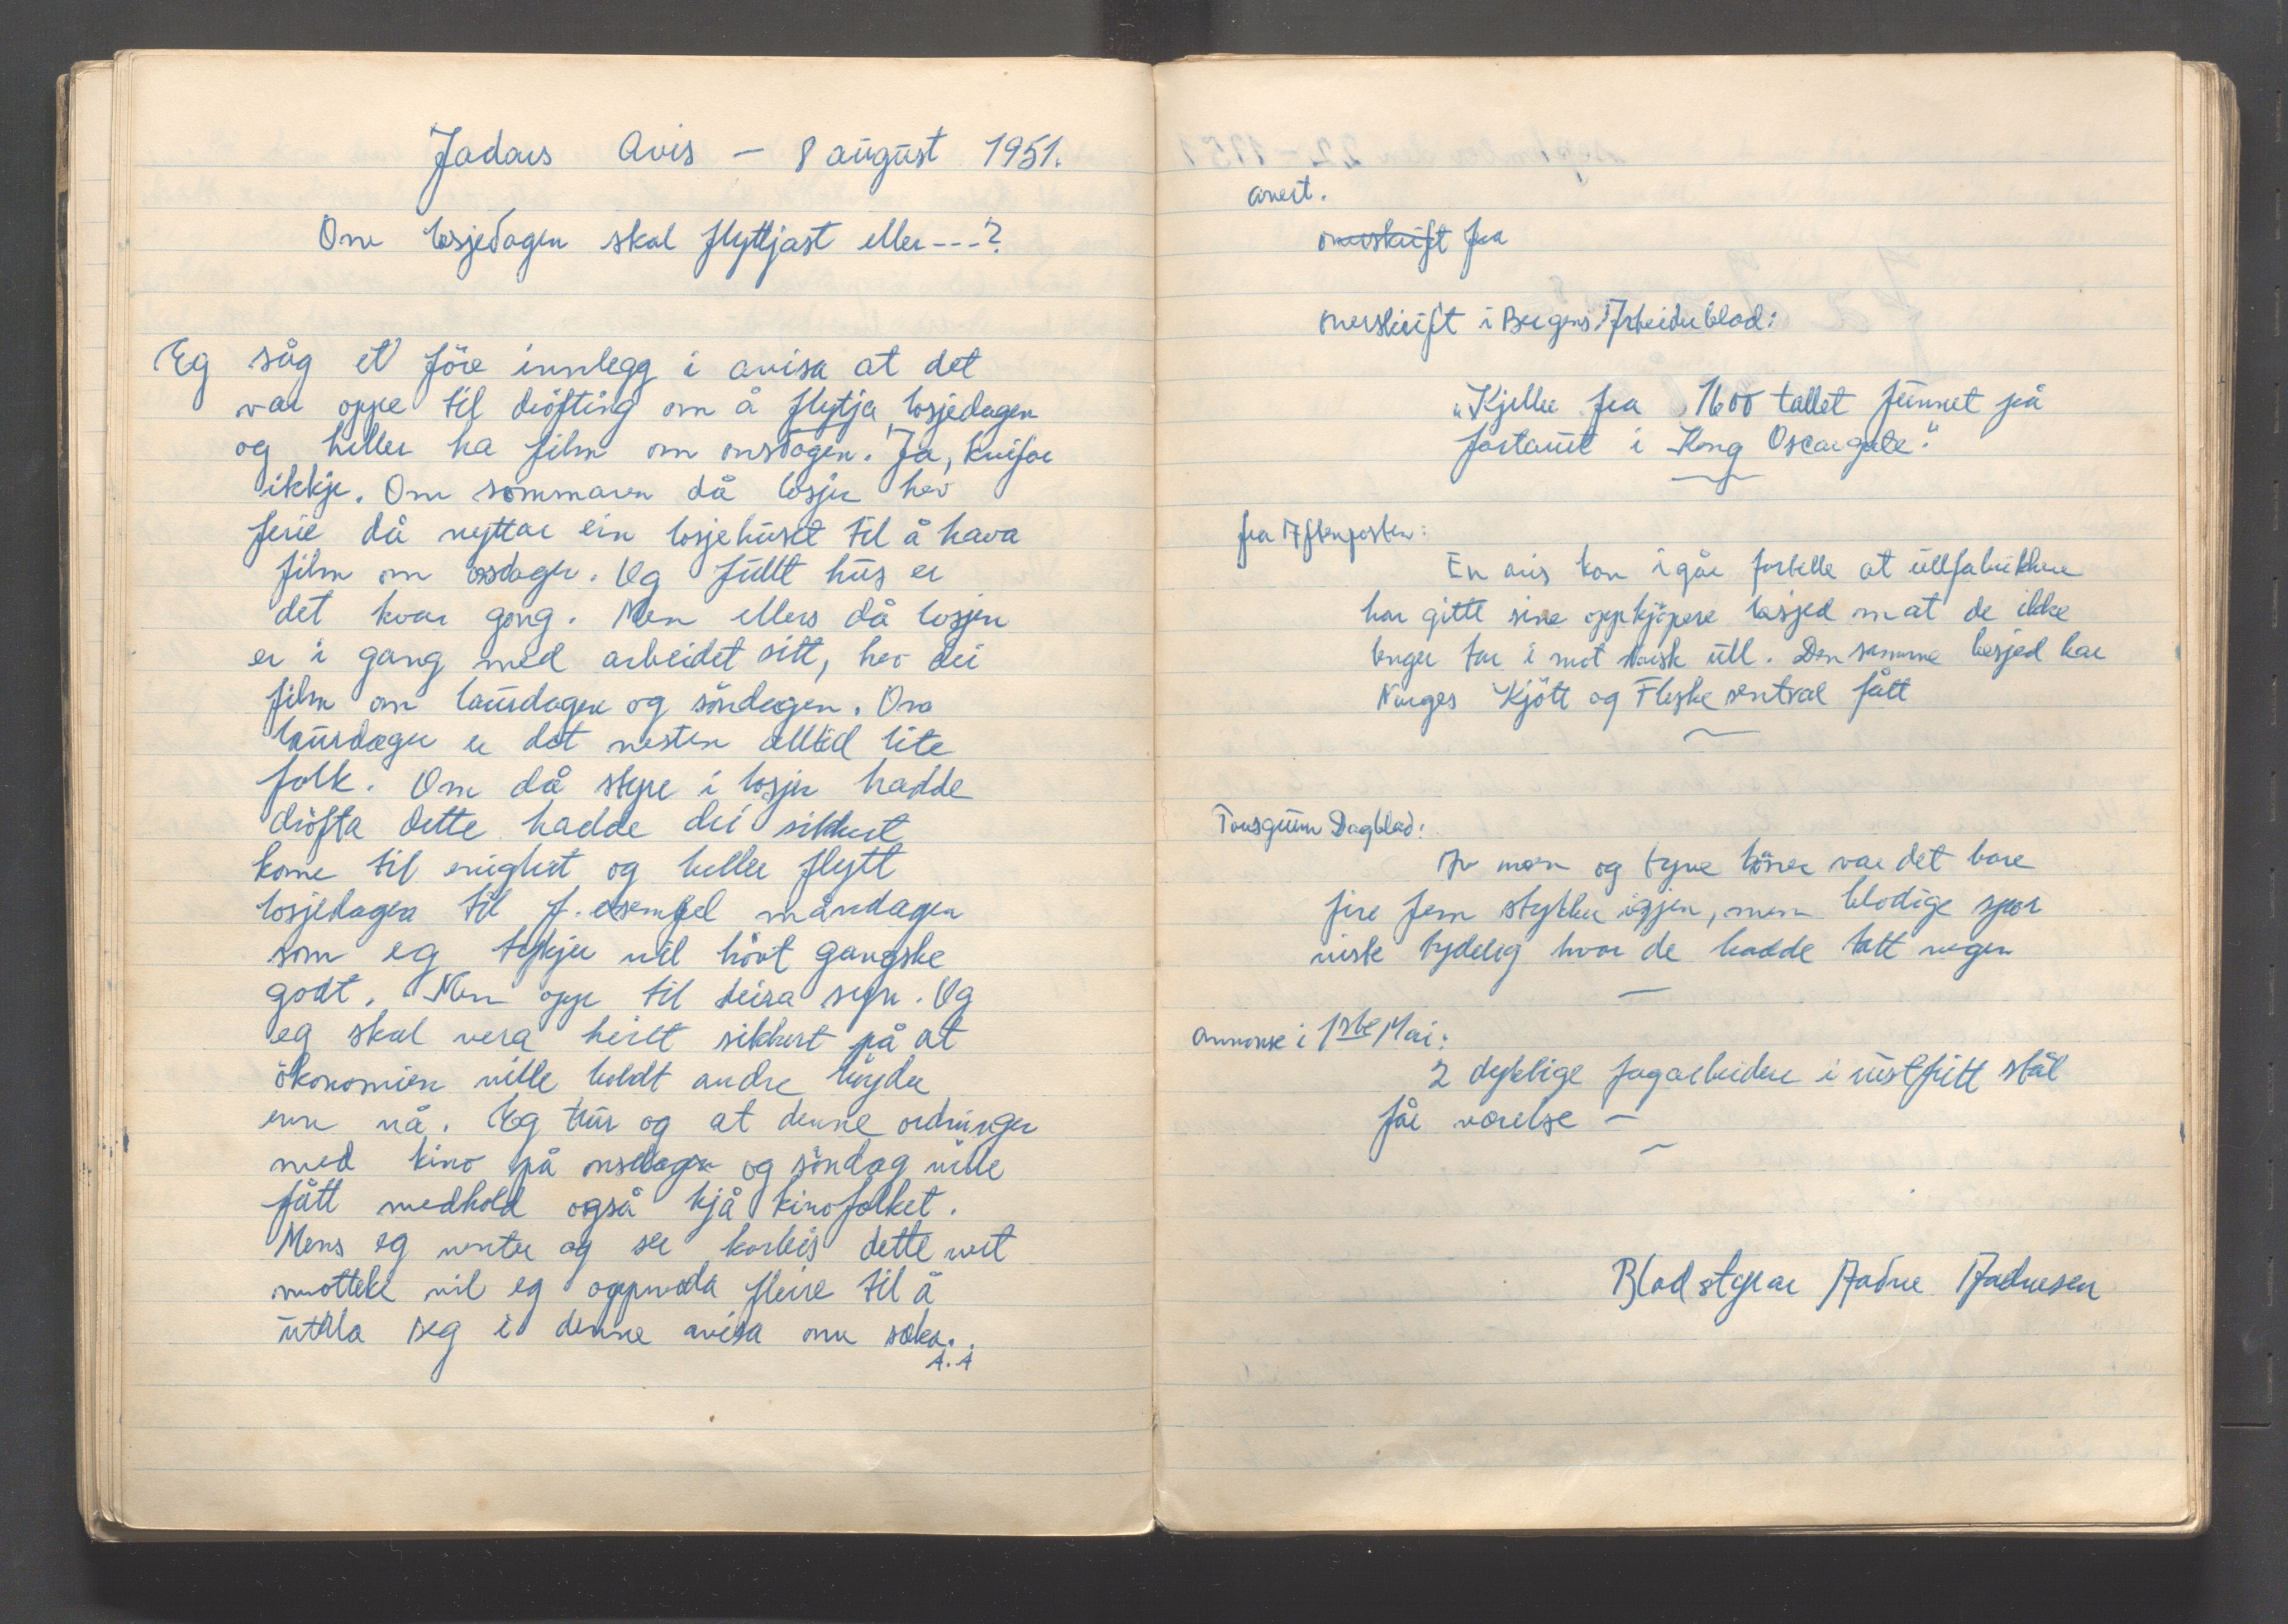 Jadars Avis - 8 august 1951.
Om losjedagen skal flyttjast eller---?
Eg såg et före innlegg i avisa at det
var oppe til dröfting om å flytja losjedagen
og heller ha film om onsdagen. Ja, kvifor
ikkje. Om sommaren då losjen hev
ferie då nyttar ein losjehuset til å hava
film om osdager. Og fullt hus er
det kvar gong. Men ellers då losjen
er i gang med arbeidet sitt, hev dei
film om laurdagen og söndagen. Om
laurdagen er det nesten alltid lite
folk. Om då stype i losjen hadde
dröfta dette hadde dei sikkert
kome til enighet og heller flytt
losjedagen til f. eksempel mandagen
som eg tykjer vil hövt gangske
godt. Men opp til deira syn. Og
eg skal vera heilt sikkert på at
ökonomien ville holdt andre höyder
enn nå. Eg trur og at denne ordningen
med kino på onsdagen og söndag ville
fått medhold også hjå kinofolket.
Mens eg venter og ser korleis dette vert
motteke vil eg oppmoda fleire til å
uttala seg i denne avisa om saka.
A. A
avert.
overskrift fra
overskrift i Bergens Arbeiderblad:
"Kjeller fra 1600 tallet funnet på
fortauet i Kong Oscargate."
fra Aftenposten:
En avis kan igår fortelle at ullfabrikkene
har gitt sine oppkjöpere besjed om at de ikke
lenger tar i mot Norsk ull. Den samme besjed har
Norges Kjött og Fleske sentral fått
Porsgrunn Dagblad:
Av mor og tyve höner var det bare
fire fem stykker igjen, men blodige spor
viste tydelig hvor de hadde tatt vegen
Annonse i 1ste Mai:
2 dyktige fagarbeidere i rustfritt stål
får værelse -
Bladstyrar Aadne Aadnesen